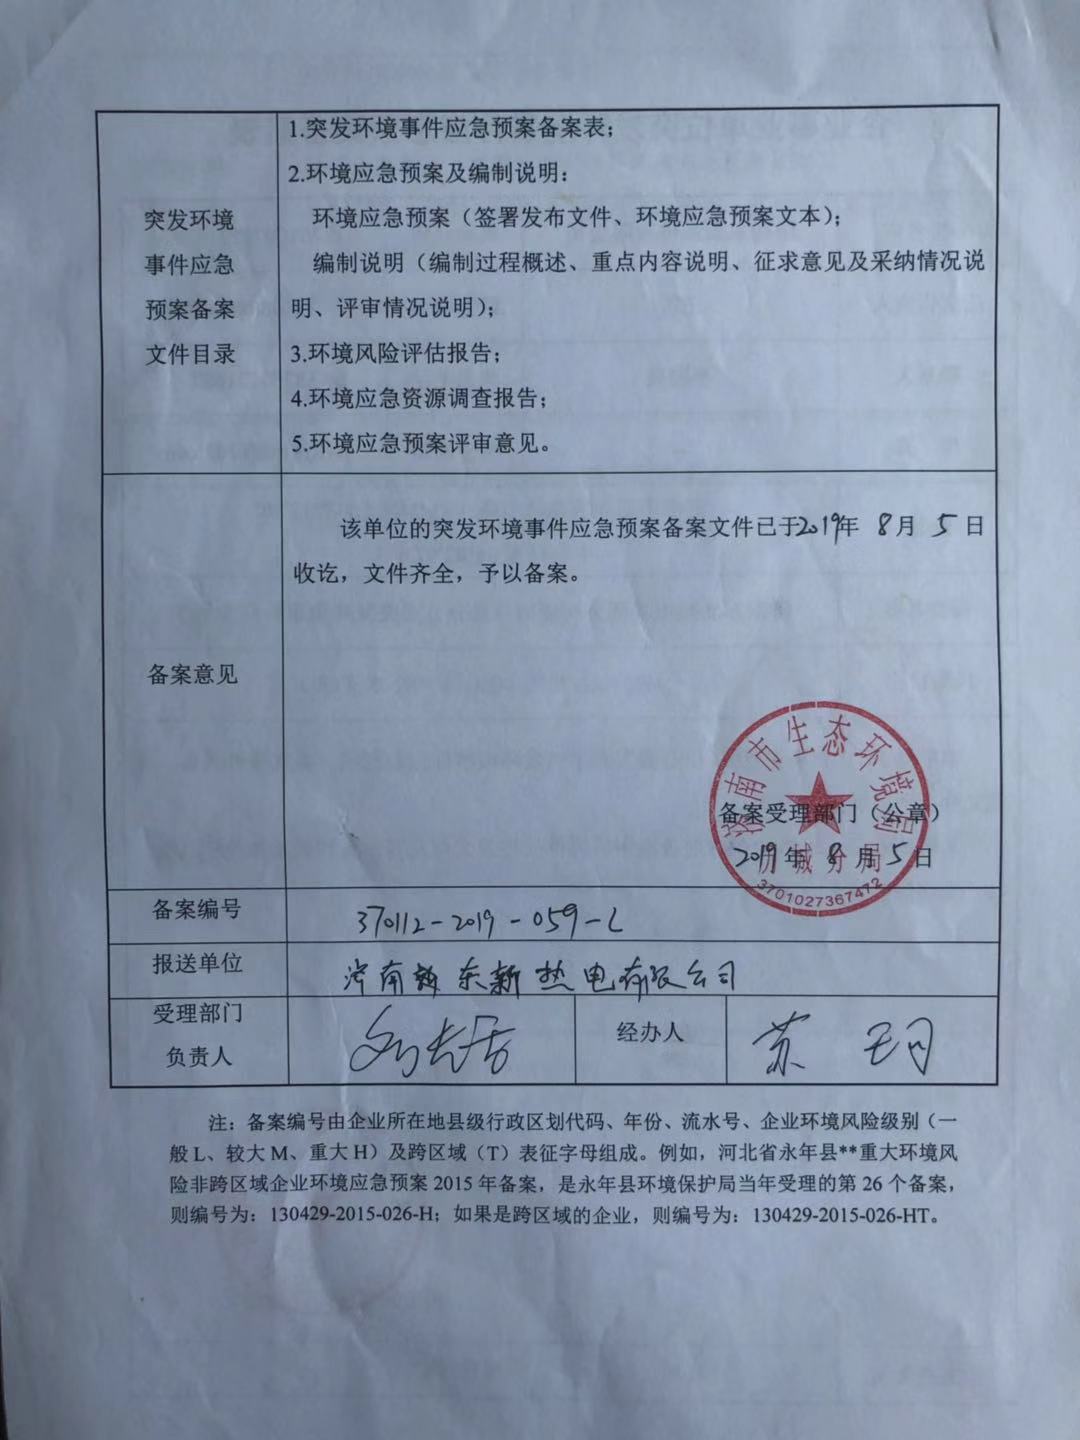 1.突发环境事件应急预案备案表；
2.环境应急预案及编制说明：
环境应急预案（签署发布文件、环境应急预案文本）；
编制说明（编制过程概述、重点内容说明、征求意见及采纳情况说
明、评审情况说明）；
3.环境风险评估报告；
4.环境应急资源调查报告；
5.环境应急预案评审意见。
突发环境
事件应急
预案备案
文件目录
备案意见
该单位的突发环境事件应急预案备案文件已于2019年 8月 5日
收讫，文件齐全，予以备案。
济南市生态环境局
历城分局
3701027367472
备案受理部门（公章）
2019年 8月 5日
备案编号
370112-2019-059-L
报送单位
济南 东新热电有限公司
受理部门
负责人
经办人
苏
注：备案编号由企业所在地县级行政区划代码、年份、流水号、企业环境风险级别（一
般 L、较大 M、重大 H）及跨区域（T）表征字母组成。例如，河北省永年县**重大环境风
险非跨区域企业环境应急预案 2015 年备案，是永年县环境保护局当年受理的第 26 个备案，
则编号为：130429-2015-026-H；如果是跨区域的企业，则编号为：130429-2015-026-HT。